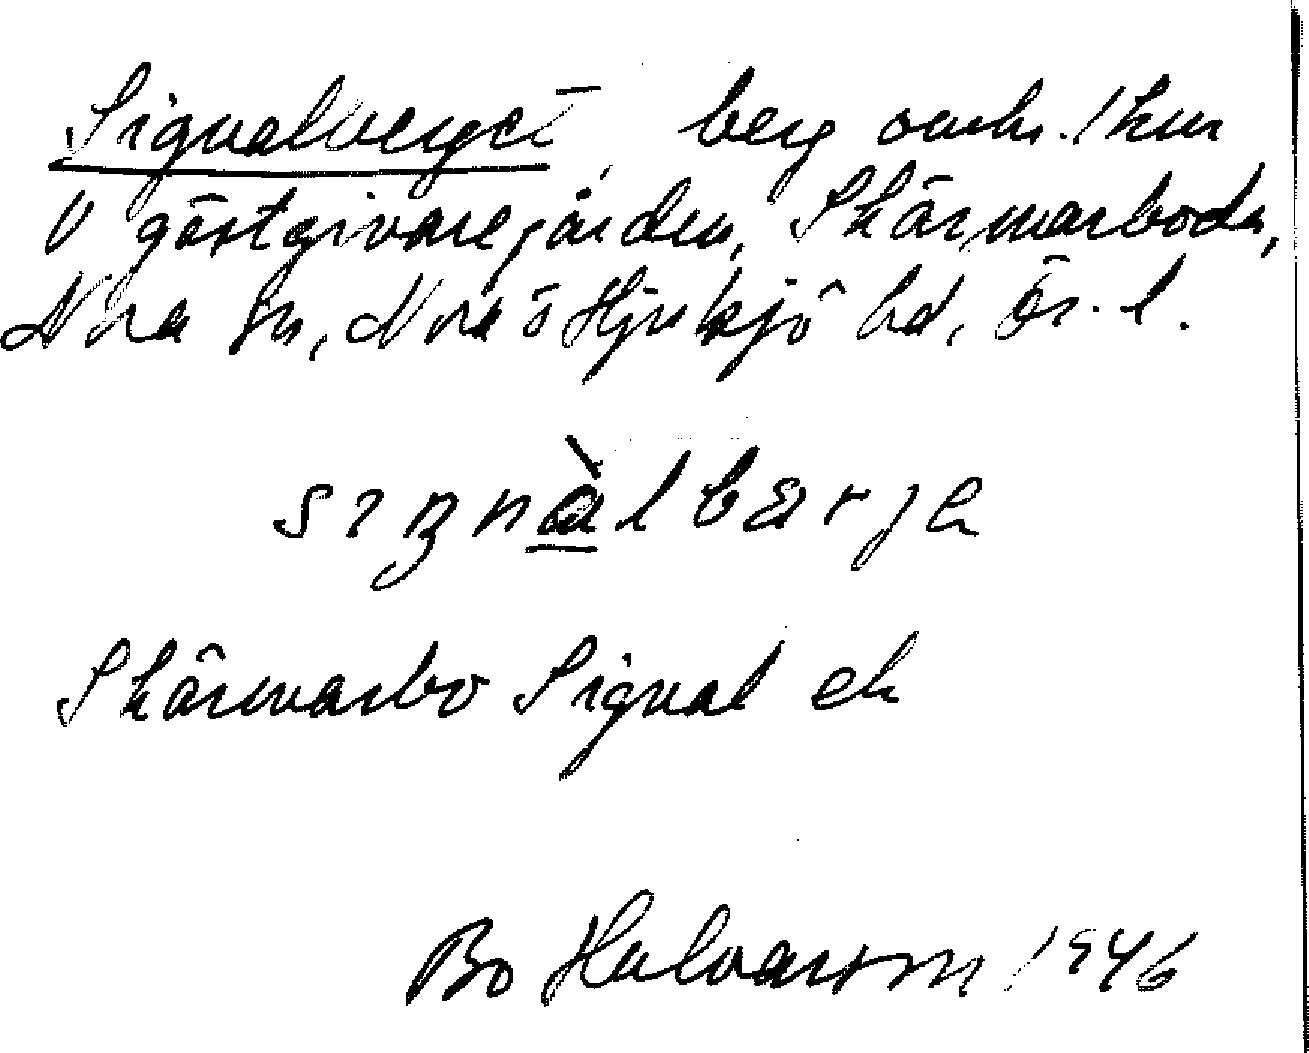 Signalberget, berg omkr. 1 km
V gästgivaregården, Skärmarboda,
Nora sn, Nora o Hjulsjö hd, Ör. l.
sıŋnàlbærje
Skärmarbo Signal ek
Bo Halvarson 1946